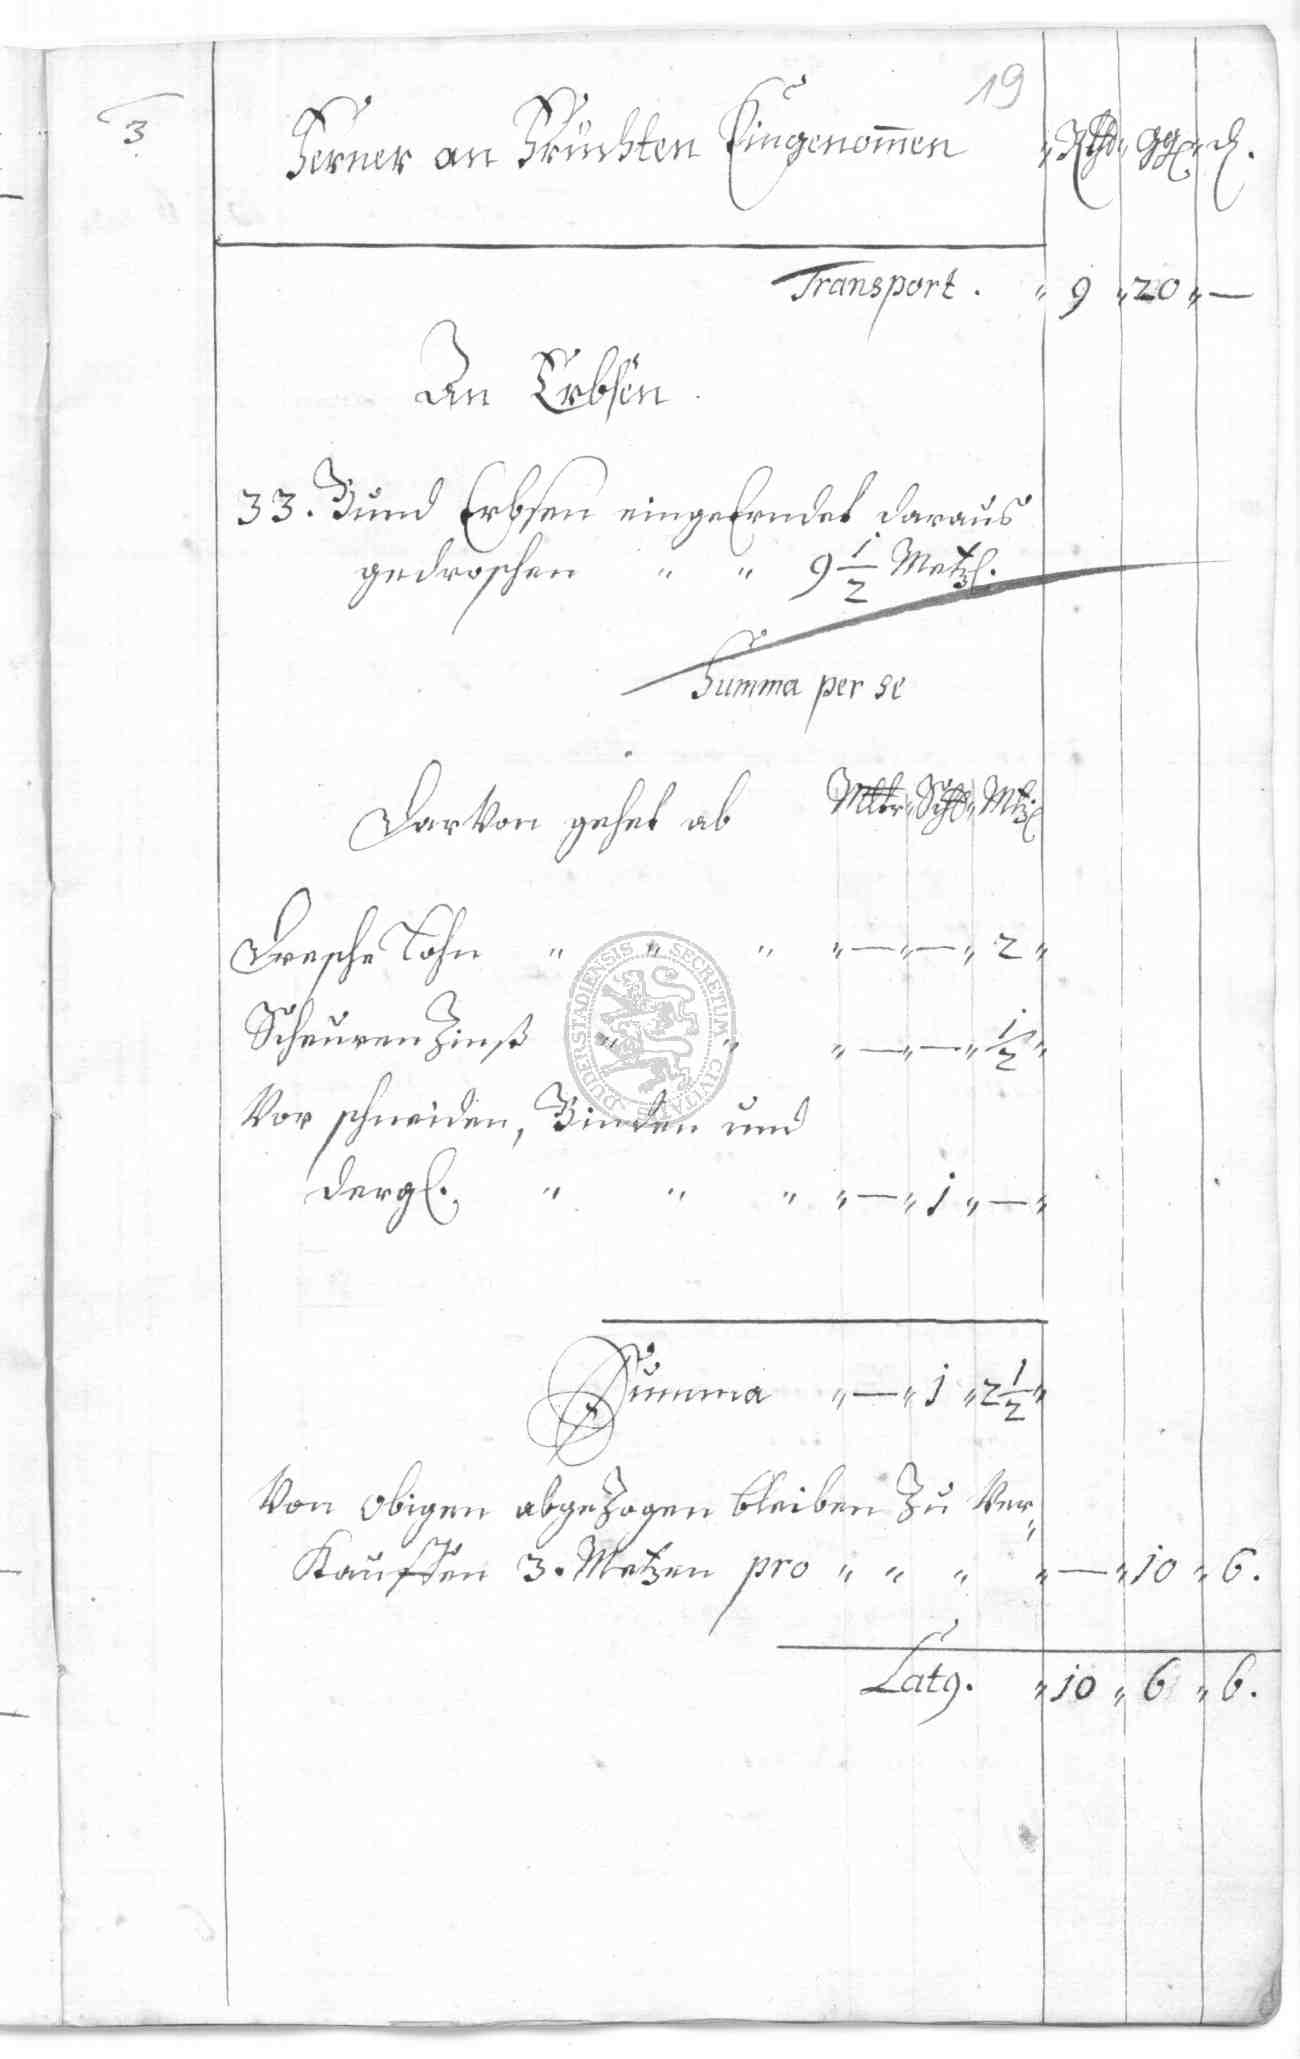 19
3
Ferner an Früchten Eingenom̅en „ Rthl „ ggl „ d.
Transport. „ 9 „ 20 „ —
An Erbsen.
33. Bund Erbsen eingeErndet daraus
gedroschen „ „ 9 1/2 Metzl.
Summa per se
DarVon gehet ab Mltr „ Schl „ Mtzl
Dresche Lohn „ „ „ „ — „ — „ 2 „
Scheuren Zinß „ „ „ — „ — „ 1/2 „
Vor schneiden, Binden und
dergl. „ „ „ „ — „ 1 „ — „
Summa „ — „ 1 „ 2 1/2 „
Von obigen abgeZogen bleiben Zu Ver„
Kauffen 3. Metzen pro „ „ „ „ — „ 10 „ 6.
Lat9. „ 10 „ 6 „ 6.
SECRETUM CIVITATIS DUDERSTADIENSIS